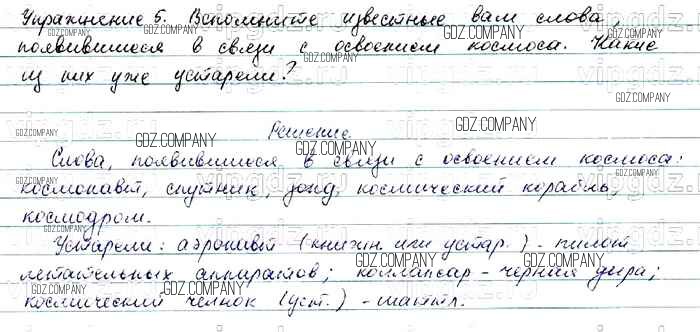 Упражнение 5. Вспомните известные вам слова,
появившиеся в связи с освоением космоса. Какие
из них уже устарели?
Решение.
Слова, появившиеся в связи с освоением космоса:
космонавт, спутник, зонд, космический корабль,
космодром.
Устарели: аэронавт (книжн. или устар.) - пилот
летательных аппаратов; коллапсар - черная дыра;
космический челнок (уст.) - шаттл.